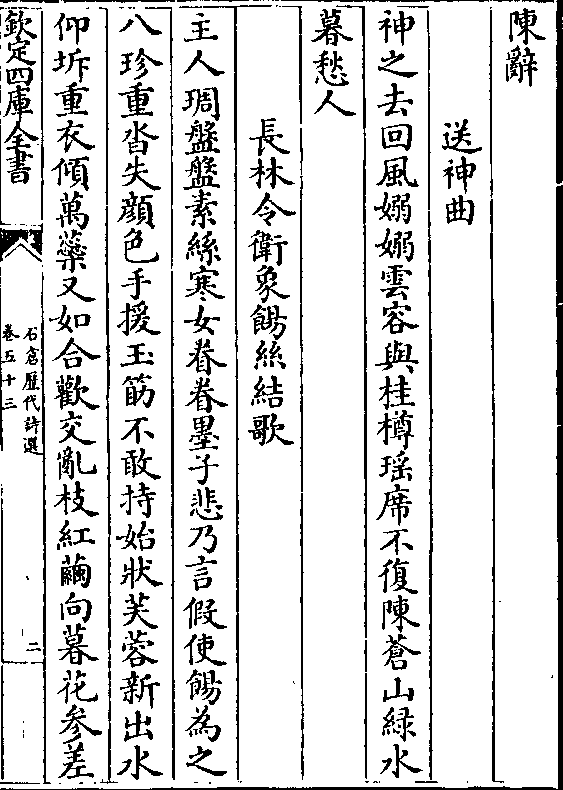 陳辭
送神曲
神之去回風嫋嫋雲容與桂樽瑶席不復陳蒼山緑水
暮愁人
長林令衛象餳絲結歌
主人琱盤盤素絲寒女眷眷墨子悲乃言假使餳為之
八珍重沓失顔色手援玉筯不敢持始狀芙蓉新出水
仰坼重衣傾萬蘂又如合歡交亂枝紅繭向暮花参差
欽定四庫全書
石倉歴代詩選
卷五十三
二